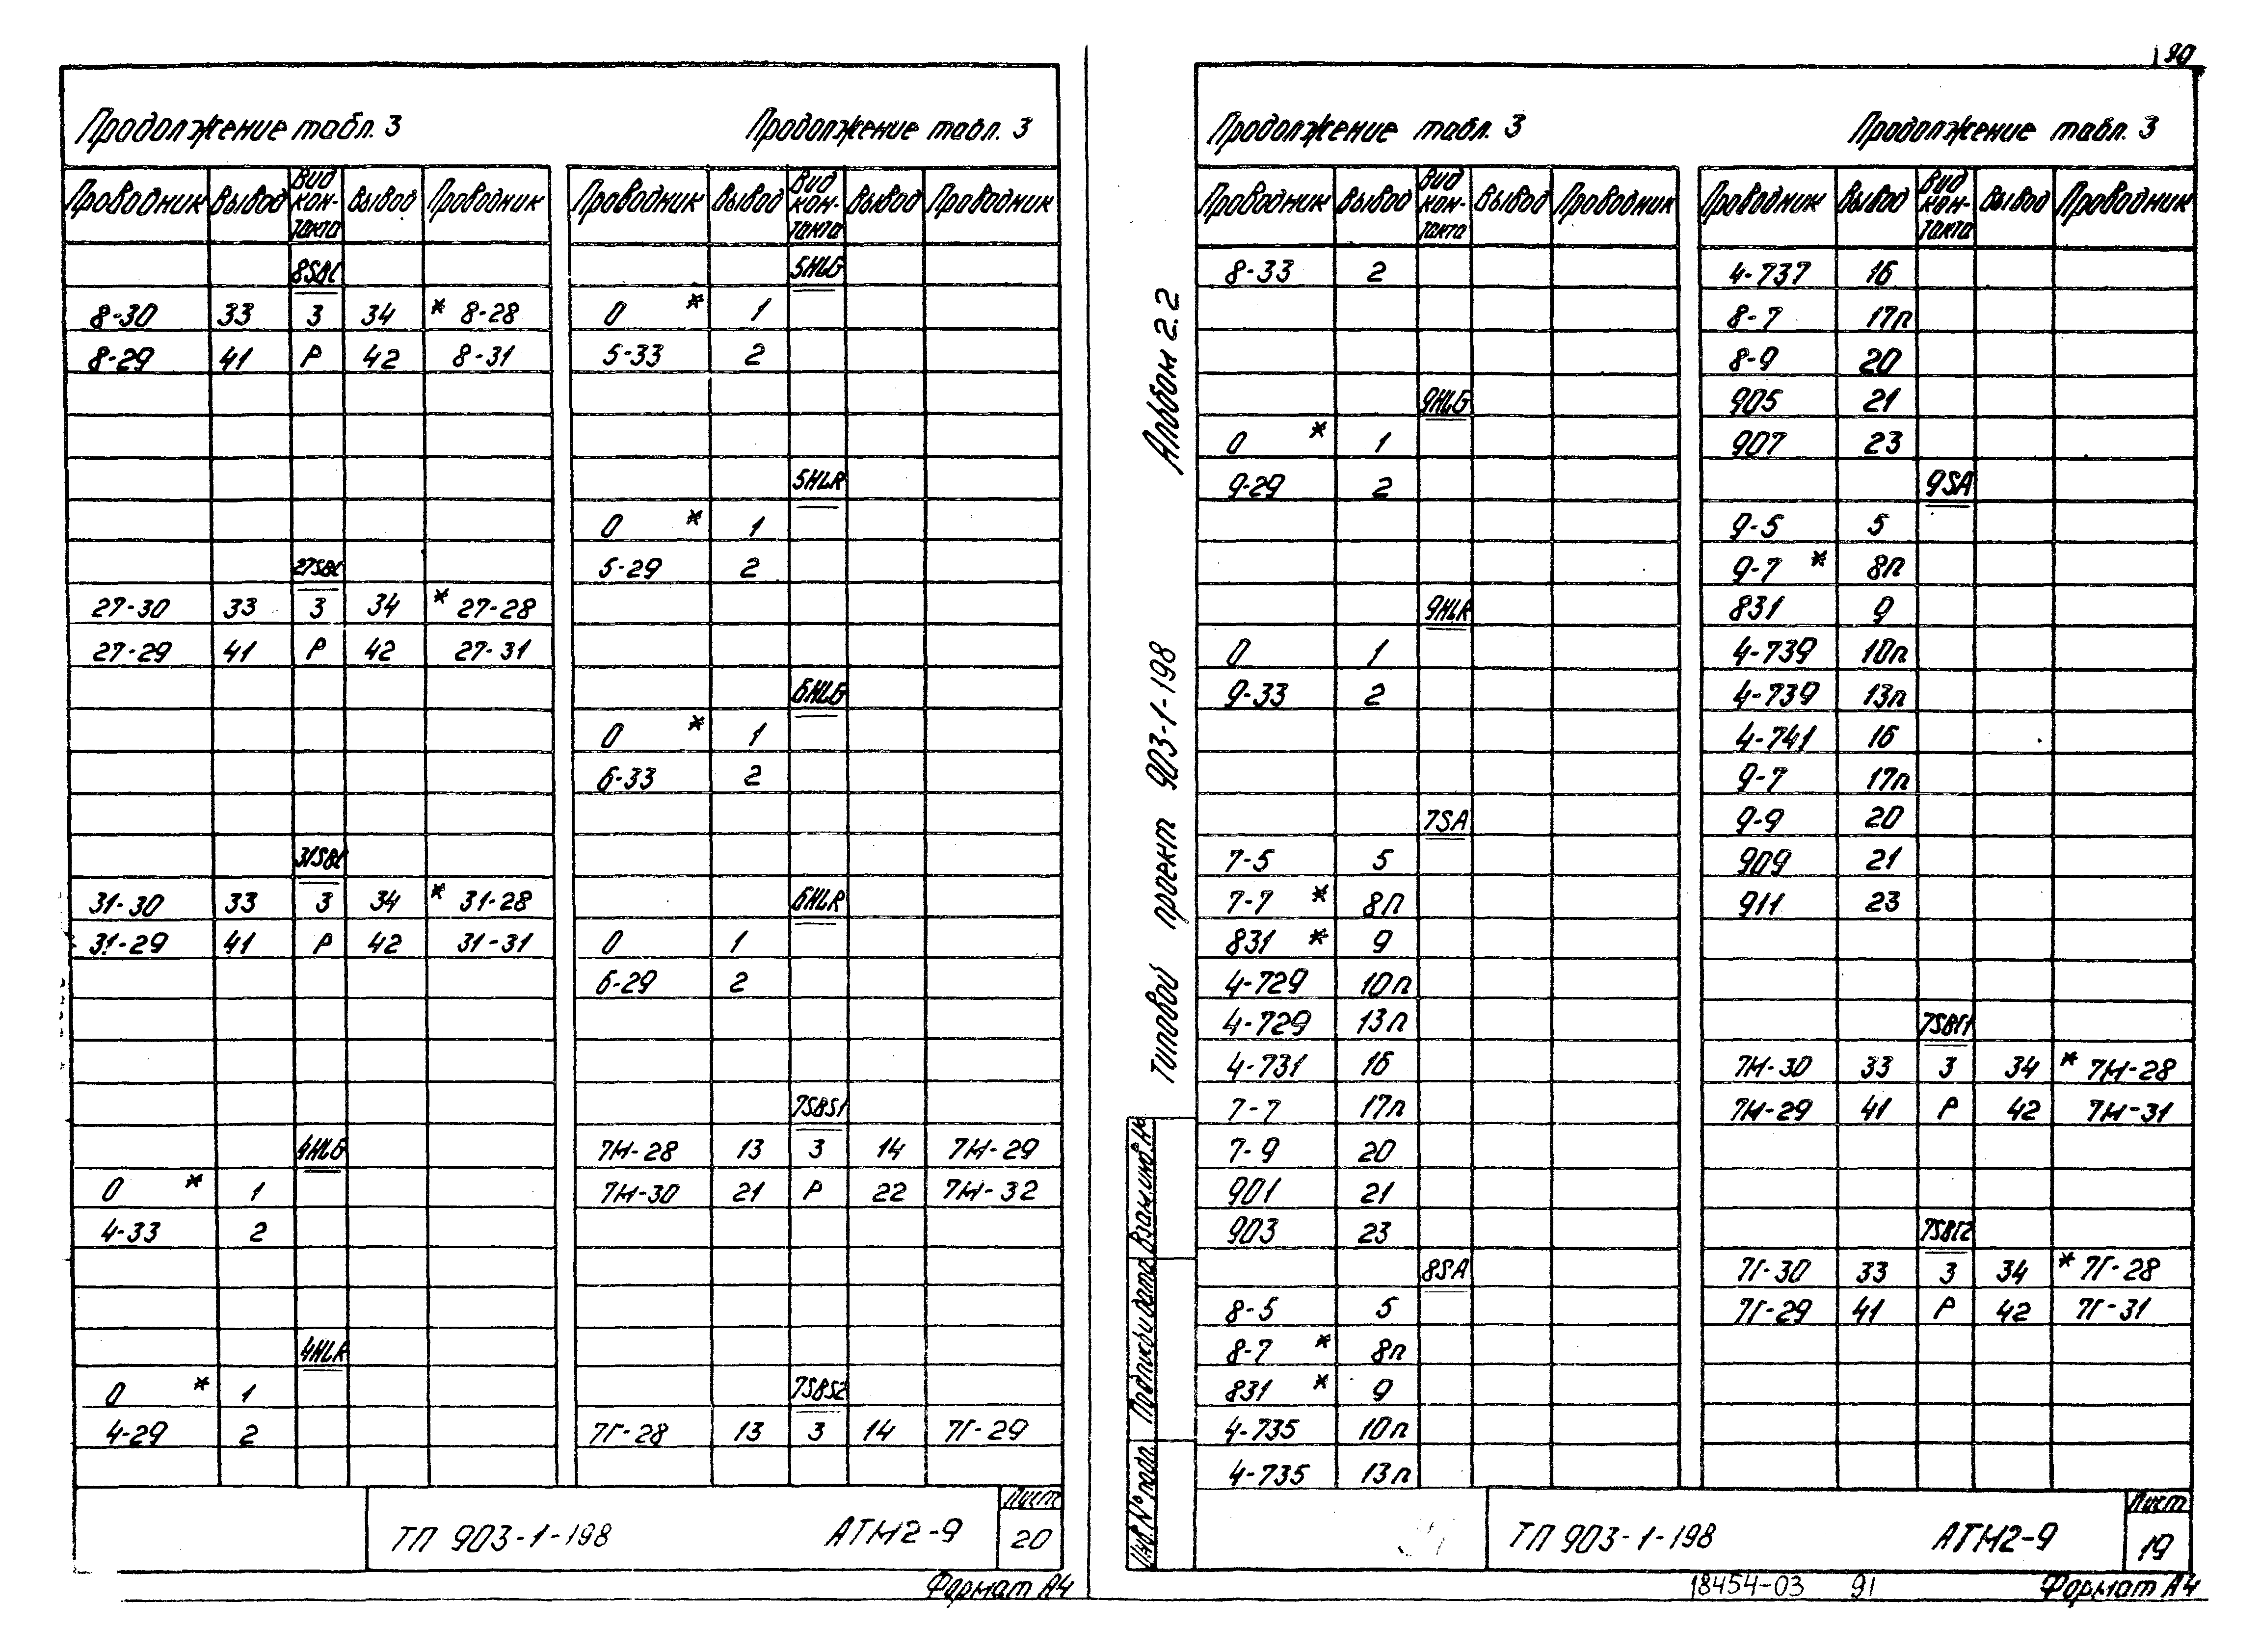 90
Продолжение табл. 3
Проводник Вывод Вид кон-такта Вывод Проводник
8SBC
8-30 33 З 34 * 8-28
8-29 41 Р 42 8-31
27SBC
27-30 33 З 34 * 27-28
27-29 41 Р 42 27-31
31SBC
31-30 33 З 34 * 31-28
31-29 41 Р 42 31-31
4HLG
0 * 1
4-33 2
4HLR
0 * 1
4-29 2
Продолжение табл. 3
Проводник Вывод Вид кон-такта Вывод Проводник
5HLG
0 * 1
5-33 2
5HLR
0 * 1
5-29 2
6HLG
0 * 1
6-33 2
6HLR
0 1
6-29 2
7SBS1
7М-28 13 З 14 7М-29
7М-30 21 Р 22 7М-32
7SBS2
7Г-28 13 З 14 7Г-29
ТП 903-1-198 АТМ2-9
Лист
20
Формат А4
Альбом 2.2
Типовой проект 903-1-198
Взам.инв.№
Подпись и дата
Инв.№ подл.
Продолжение табл. 3
Проводник Вывод Вид кон-такта Вывод Проводник
8-33 2
9HLG
0 * 1
9-29 2
9HLR
0 1
9-33 2
7SA
7-5 5
7-7 * 8п
831 * 9
4-729 10п
4-729 13п
4-731 16
7-7 17п
7-9 20
901 21
903 23
8SA
8-5 5
8-7 * 8п
831 * 9
4-735 10п
4-735 13п
Продолжение табл. 3
Проводник Вывод Вид кон-такта Вывод Проводник
4-737 16
8-7 17п
8-9 20
905 21
907 23
9SA
9-5 5
9-7 * 8п
831 9
4-739 10п
4-739 13п
4-741 16
9-7 17п
9-9 20
909 21
911 23
7SBT1
7М-30 33 З 34 * 7М-28
7М-29 41 Р 42 7М-31
7SBT2
7Г-30 33 З 34 * 7Г-28
7Г-29 41 Р 42 7Г-31
ТП 903-1-198 АТМ2-9
Лист
19
18454-03 91 Формат А4